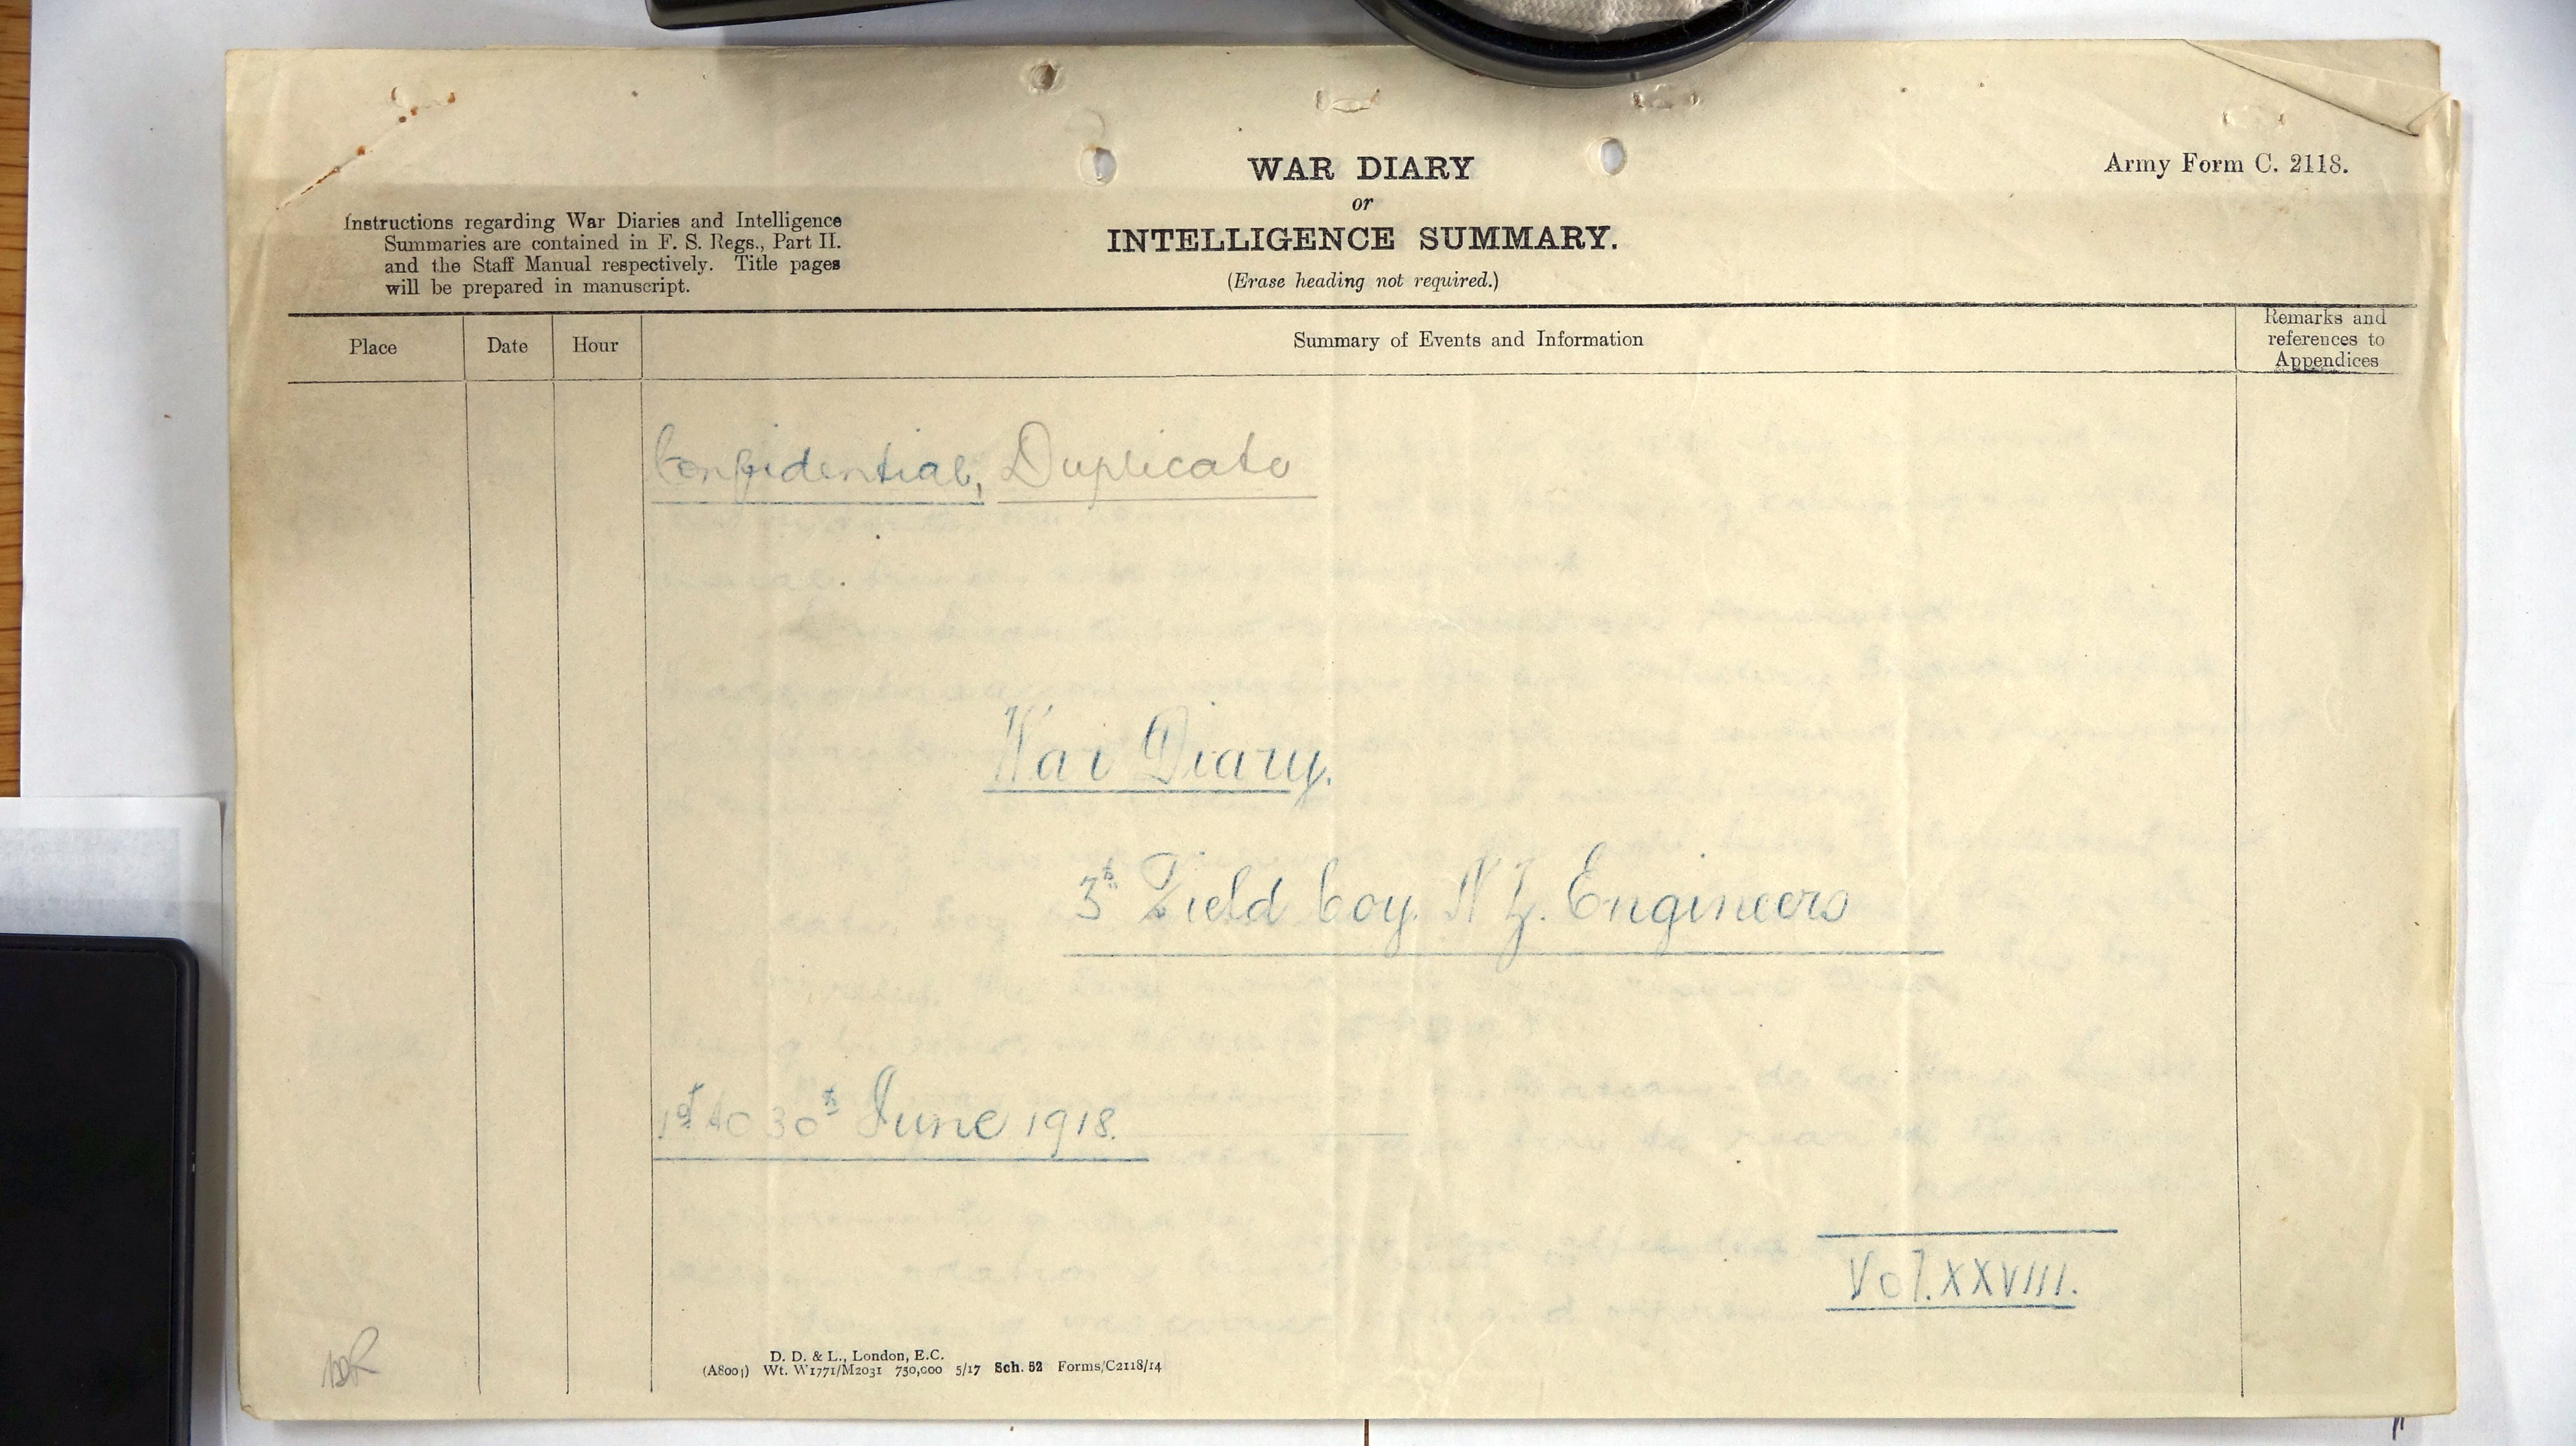 WAR DIARY
or
INTELLIGENCE SUMMARY.
(Erase heading not required.)
Army Form C. 2118.
Instructions regarding War Diaries and Intelligence
Summaries are contained in F. S. Regs., Part II.
and the Staff Manual respectively. Title pages
will be prepared in manuscript.
Place Date Hour Summary of Events and Information Remarks and
references to
Appendices
Confidential, Duplicate
War Diary.
3rd Field Coy. N Z. Engineers
1st to 30th June 1918.
Vol. XXVIII.
D. D. & L., London, E.C.
(A8001) Wt. W1771/M2031 750,000 5/17 Sch. 52 Forms/C2118/14